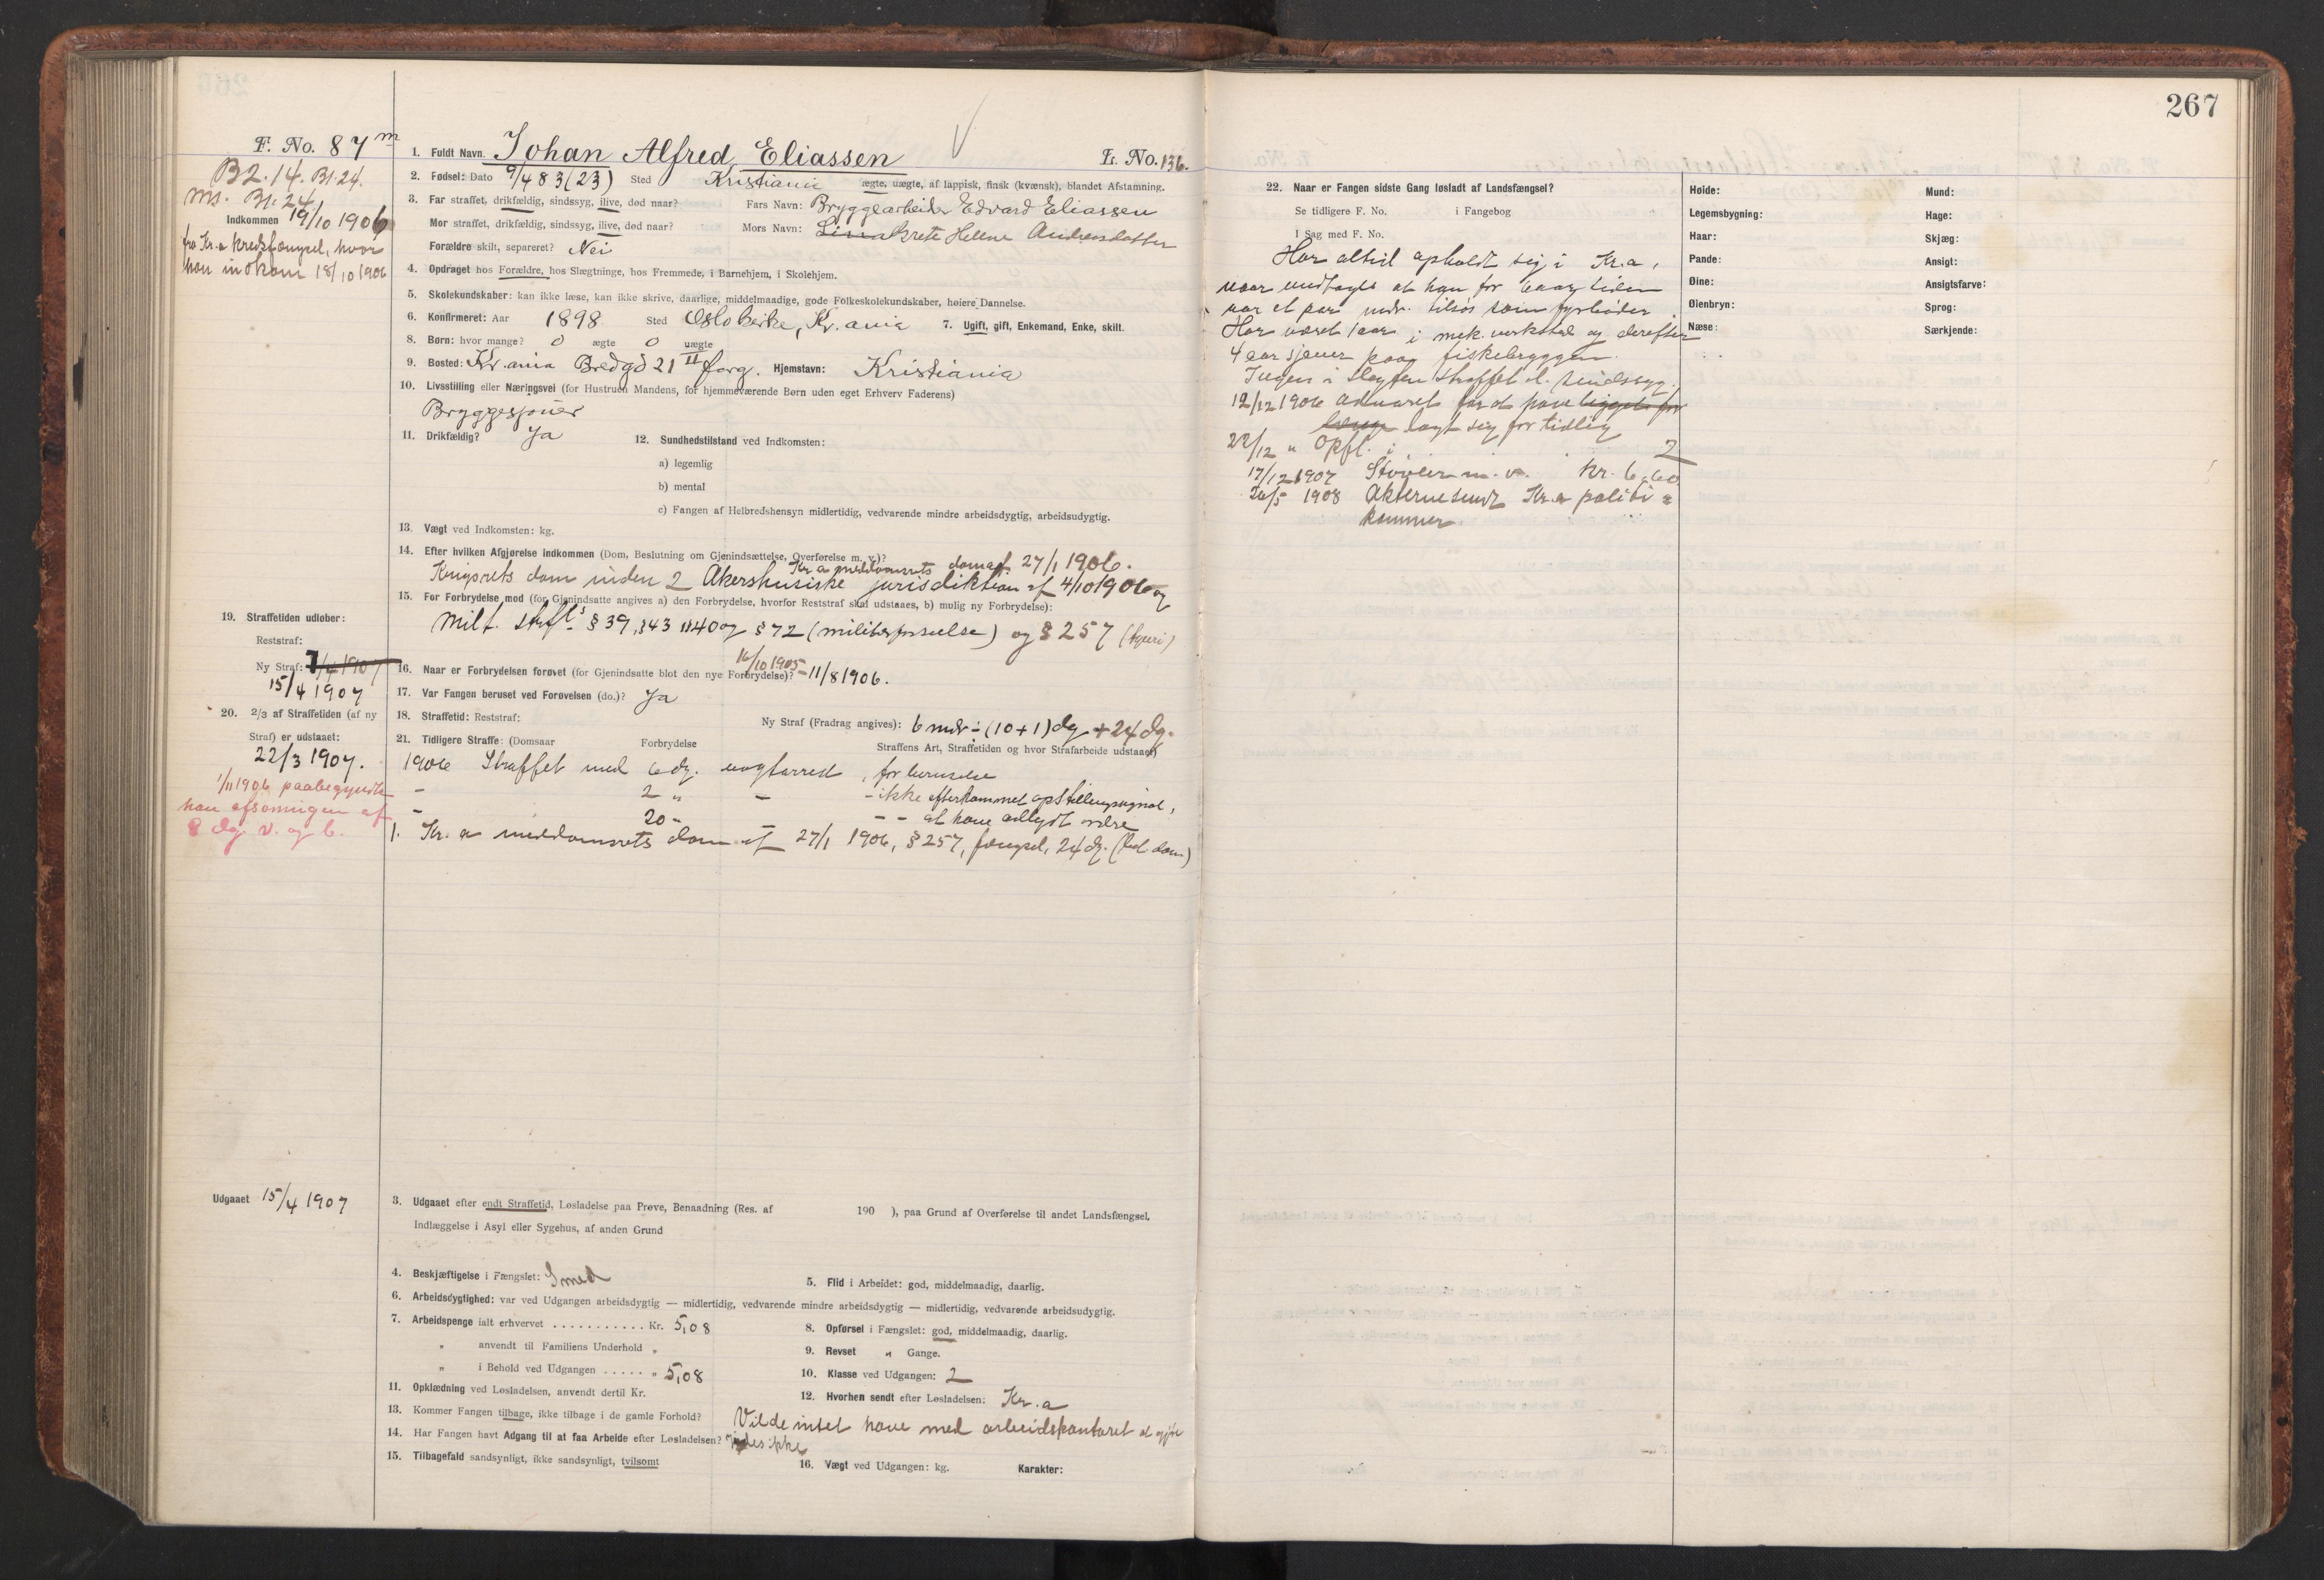 267
F. No. 87 m
B2.14. Bl. 24.
Ms. Bl. 24
Indkommen 19/10 1906
fra Kr.a kredsfængsel, hvor
han indkom 18/10 1906
1. Fuldt Navn. Johan Alfred Eliassen L. No. 136.
2. Fødsel: Dato 9/4 83 (23) Sted Kristiania ægte, uægte, af lappisk, finsk (kvænsk), blandet Afstamning.
3. Far straffet, drikfældig, sindssyg, ilive, død naar? Fars Navn: Bryggearbeider Edvard Eliassen
Mor straffet, drikfældig, sindssyg, ilive, død naar? Mors Navn: Grete Helene Andersdatter
Forældre skilt, separeret? Nei
4. Opdraget hos Forældre, hos Slægtninge, hos Fremmede, i Barnehjem, i Skolehjem.
5. Skolekundskaber: kan ikke læse, kan ikke skrive, daarlige, middelmaadige, gode Folkeskolekundskaber, høiere Dannelse.
6. Konfirmeret: Aar 1898 Sted Oslo kirke, Kr.ania 7. Ugift, gift, Enkemand, Enke, skilt.
8. Børn: hvor mange? 0 ægte 0 uægte
9. Bosted: Kr.ania Bredgd 21 II Hjemstavn: Kristiania
10. Livsstilling eller Næringsvei (for Hustruen Mandens, for hjemmeværende Børn uden eget Erhverv Faderens)
Bryggesjouer
11. Drikfældig? Ja 12. Sundhedstilstand ved Indkomsten:
a) legemlig
b) mental
c) Fangen af Helbredshensyn midlertidig, vedvarende mindre arbeidsdygtig, arbeidsudygtig.
13. Vægt ved Indkomsten: kg.
14. Efter hvilken Afgjørelse indkommen (Dom, Beslutning om Gjenindsættelse, Overførelse m. v.)?
Kr.a meddomsrets dom af 27/1 1906.
Krigsrets dom inden 2 Akershusiske jurisdiktion af 4/10 1906 og
15. For Forbrydelse mod (for Gjenindsatte angives a) den Forbrydelse, hvorfor Reststraf skal udstaaes, b) mulig ny Forbrydelse):
milt. strfl.s § 39, § 43 40 og § 72 (militærforseelse) og § 257 (tyveri)
19. Straffetiden udløber:
Reststraf:
Ny Straf: 7/4 1907
15/4 1907
16. Naar er Forbrydelsen forøvet (for Gjenindsatte blot den nye Forbrydelse)? 16/10 1905 – 11/8 1906.
17. Var Fangen beruset ved Forøvelsen (do.)? Ja
18. Straffetid: Reststraf: Ny Straf (Fradrag angives): 6 mdr ÷ (10+1) dg + 24 dg.
20. 2/3 af Straffetiden (af ny
Straf) er udstaaet:
22/3 1907.
1/11 1906 paabegyndte
han afsoningen af
8 dg. v. og b.
21. Tidligere Straffe: (Domsaar Forbrydelse Straffens Art, Straffetiden og hvor Strafarbeide udstaaet)
1906 Straffet med 6 dg. vagtarrest, for beruselse
– 2 " – – ikke efterkommet opstillingssignal,
– 20 " – – at have adlydt ordre
1. Kr.a meddomsrets dom af 27/1 1906, § 257, fængsel, 24 dg. (bet. dom)
Udgaaet 15/4 1907
3. Udgaaet efter endt Straffetid, Løsladelse paa Prøve, Benaadning (Res. af 190 ), paa Grund af Overførelse til andet Landsfængsel.
Indlæggelse i Asyl eller Sygehus, af anden Grund
4. Beskjæftigelse i Fængslet: Smed 5. Flid i Arbeidet: god, middelmaadig, daarlig.
6. Arbeidsdygtighed: var ved Udgangen arbeidsdygtig — midlertidig, vedvarende mindre arbeidsdygtig — midlertidig, vedvarende arbeidsudygtig.
7. Arbeidspenge ialt erhvervet . . . . . . . . . . . Kr. 5,08 8. Opførsel i Fængslet: god, middelmaadig, daarlig.
" anvendt til Familiens Underhold " 9. Revset " Gange.
" i Behold ved Udgangen . . . . . " 5,08 10. Klasse ved Udgangen: 2
11. Opklædning ved Løsladelsen, anvendt dertil Kr. 12. Hvorhen sendt efter Løsladelsen: Kr.a
13. Kommer Fangen tilbage, ikke tilbage i de gamle Forhold? Vilde intet have med arbeidskontoret at gjøre
14. Har Fangen havt Adgang til at faa Arbeide efter Løsladelsen? vides ikke
15. Tilbagefald sandsynligt, ikke sandsynligt, tvilsomt 16. Vægt ved Udgangen: kg. Karakter:
22. Naar er Fangen sidste Gang løsladt af Landsfængsel?
Se tidligere F. No. i Fangebog
I Sag med F. No.
Har altid opholdt sig i Kr.a,
naar undtages at han for 6 aar siden
var et par mdr. tilsøs som fyrbøder.
Har været 1 aar i mek. verksted og derefter
4 aar sjouer paa fiskebryggen.
Ingen i slegten straffet el. sindssyg.
12/12 1906 Advaret for at have ligget for
længe lagt sig for tidlig
22/12 " Opfl. i 2
17/12 1907 Støvler m. v. Kr. 6,60
26/5 1908 Akterne sendt Kr.a politi=
kammer
Høide:
Legemsbygning:
Haar:
Pande:
Øine:
Øienbryn:
Næse:
Mund:
Hage:
Skjæg:
Ansigt:
Ansigtsfarve:
Sprog:
Særkjende: